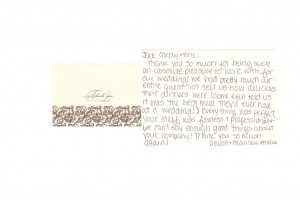 Thank You
Thank you so much for being such
an absolute pleasure to work with for
our wedding! We had pretty much our
entire guest list tell us how delicious
their dinners were (some even told us
it was the best meal they'd ever had
at a wedding!) Everything was perfect,
your staff was flawless & professional
We can't say enough good things about
your company! Thank you so much
again!